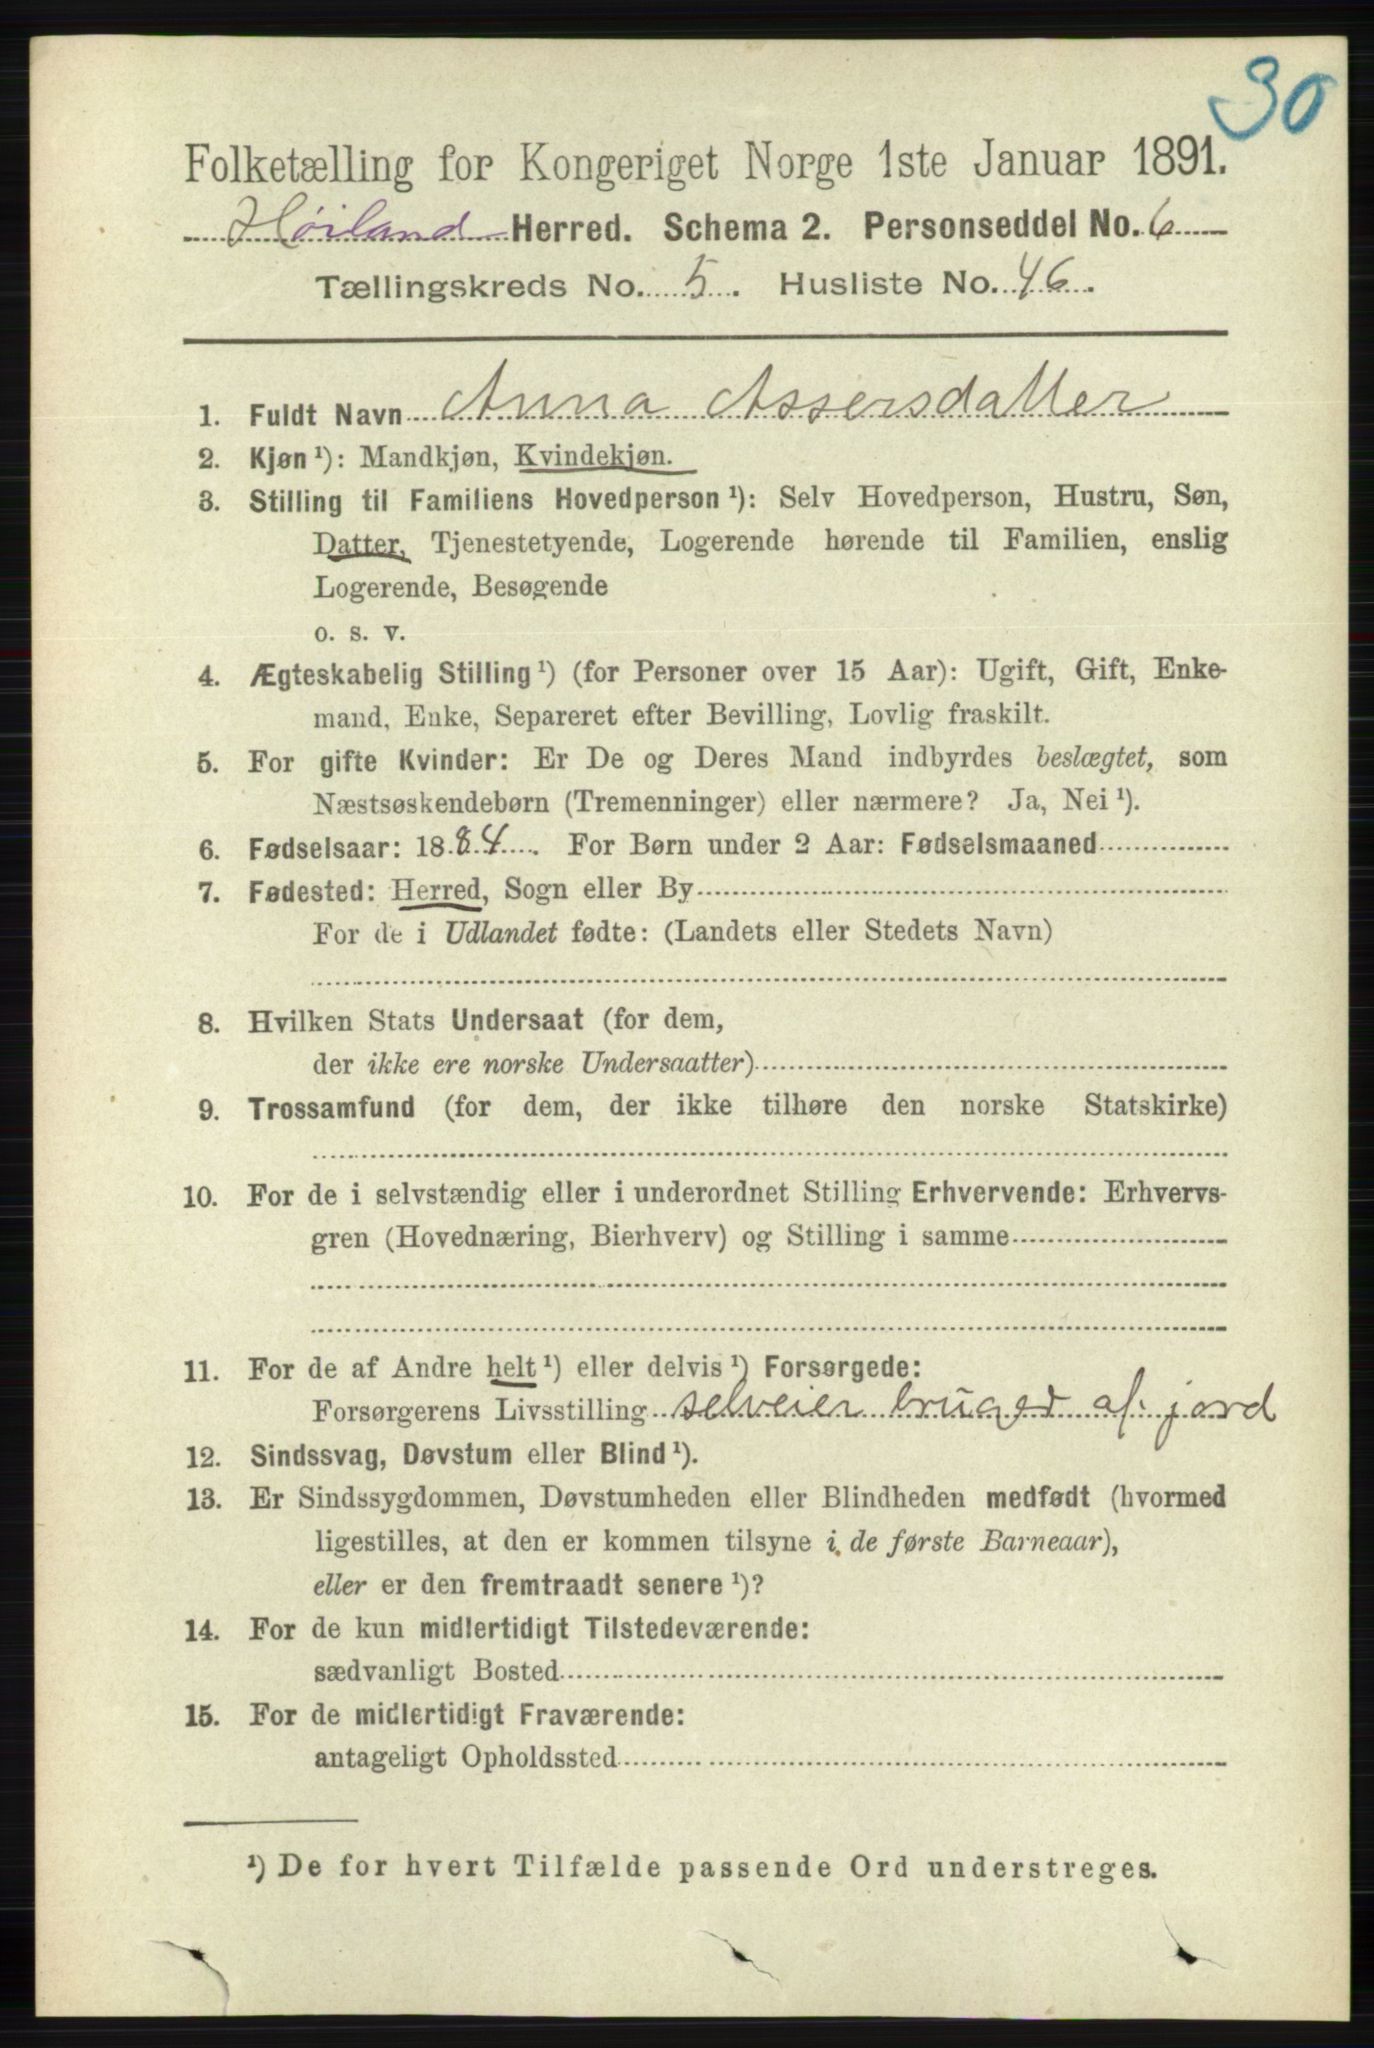 30
Folketælling for Kongeriget Norge 1ste Januar 1891.
Høiland Herred. Schema 2. Personseddel No. 6
Tællingskreds No. 5. Husliste No. 46.
1. Fuldt Navn Anna Assersdatter
2. Kjøn ¹): Mandkjøn, Kvindekjøn.
3. Stilling til Familiens Hovedperson ¹): Selv Hovedperson, Hustru, Søn,
Datter, Tjenestetyende, Logerende hørende til Familien, enslig
Logerende, Besøgende
o. s. v.
4. Ægteskabelig Stilling ¹) (for Personer over 15 Aar): Ugift, Gift, Enke-
mand, Enke, Separeret efter Bevilling, Lovlig fraskilt.
5. For gifte Kvinder: Er De og Deres Mand indbyrdes beslægtet, som
Næstsøskendebørn (Tremenninger) eller nærmere? Ja, Nei ¹).
6. Fødselsaar: 1884. For Børn under 2 Aar: Fødselsmaaned
7. Fødested: Herred, Sogn eller By
For de i Udlandet fødte: (Landets eller Stedets Navn)
8. Hvilken Stats Undersaat (for dem,
der ikke ere norske Undersaatter)
9. Trossamfund (for dem, der ikke tilhøre den norske Statskirke)
10. For de i selvstændig eller i underordnet Stilling Erhvervende: Erhvervs-
gren (Hovednæring, Bierhverv) og Stilling i samme
11. For de af Andre helt ¹) eller delvis ¹) Forsørgede:
Forsørgerens Livsstilling selveier bruger af jord
12. Sindssvag, Døvstum eller Blind ¹).
13. Er Sindssygdommen, Døvstumheden eller Blindheden medfødt (hvormed
ligestilles, at den er kommen tilsyne i de første Barneaar),
eller er den fremtraadt senere ¹)?
14. For de kun midlertidigt Tilstedeværende:
sædvanligt Bosted
15. For de midlertidigt Fraværende:
antageligt Opholdssted
¹) De for hvert Tilfælde passende Ord understreges.